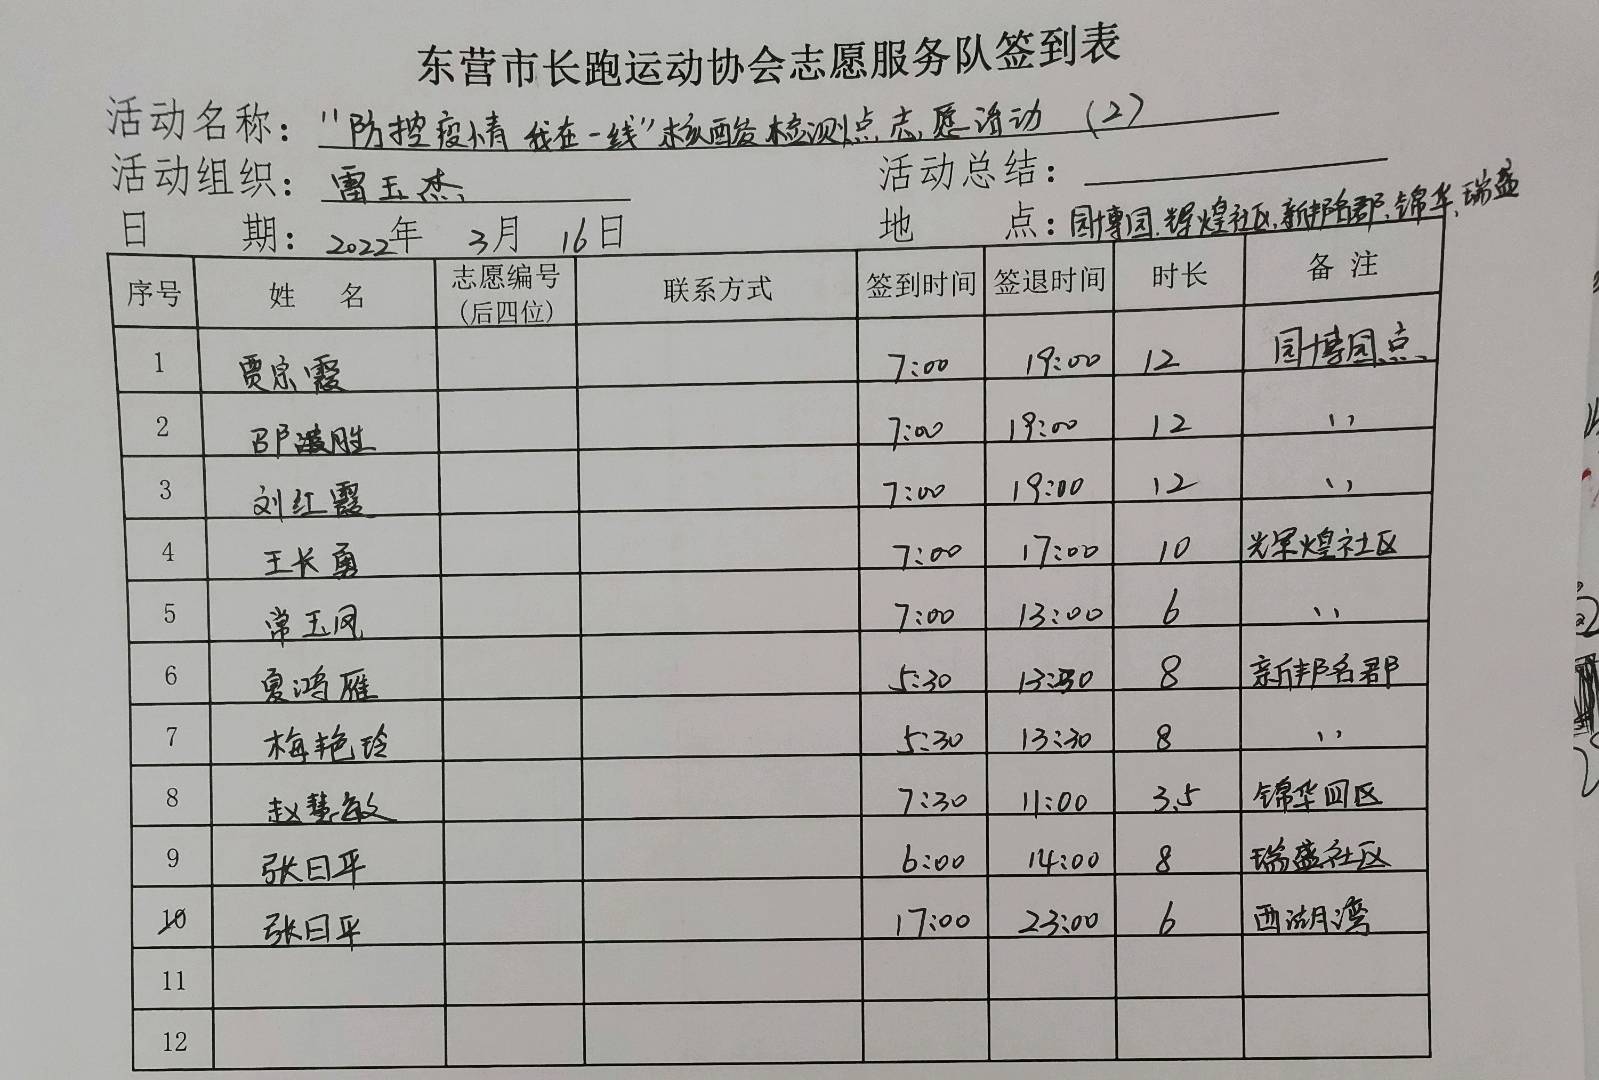 东营市长跑运动协会志愿服务队签到表
活动名称："防控疫情 我在一线"核酸检测点志愿活动 （2）
活动组织：雷玉杰 活动总结：
日 期：2022年 3月 16日 地 点：园博园.辉煌社区.新邦名郡.锦华.瑞盛
序号 姓 名 志愿编号(后四位) 联系方式 签到时间 签退时间 时长 备 注
1 贾宗霞 7:00 19:00 12 园博园点
2 邵波胜 7:00 19:00 12 ''
3 刘红霞 7:00 19:00 12 ''
4 王长勇 7:00 17:00 10 辉煌社区
5 常玉凤 7:00 13:00 6 ''
6 夏鸿雁 5:30 13:30 8 新邦名郡
7 梅艳玲 5:30 13:30 8 ''
8 赵慧敏 7:30 11:00 3.5 锦华四区
9 张日平 6:00 14:00 8 瑞盛社区
10 张日平 17:00 23:00 6 西湖湾
11
12